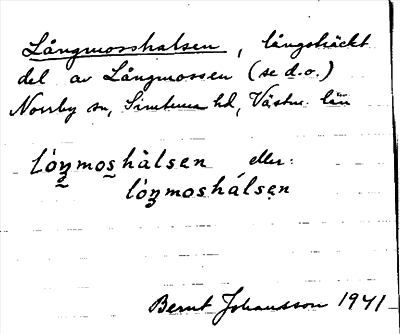 Långmosshalsen, långsträckt
del av Långmossen (se d.o.)
Norrby sn, Simtuna hd, Västm. län
lóŋmoshàlsen eller:
lóŋmoshálsen
Bernt Johansson 1941